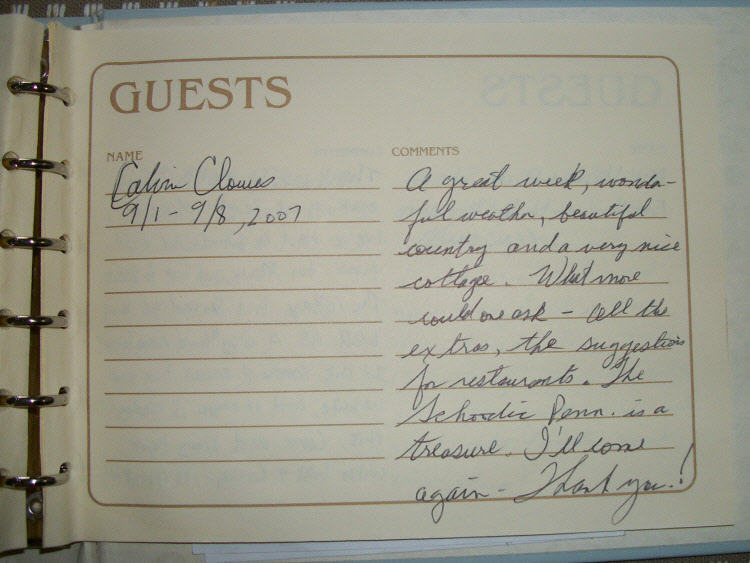 GUESTS
NAME
Calvin Clowes
9/1 - 9/8, 2007
COMMENTS
A great week, wonder-
ful weather, beautiful
country and a very nice
cottage. What more
could one ask - all the
extras, the suggestions
for restaurants. The
Schoodic Penn. is a
treasure. I'll come
again - Thank you!